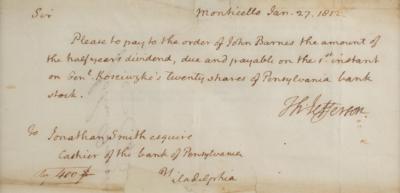 Monticello Jan. 27. 1812.
Sir
Please to pay to the order of John Barnes the amount of
the half year's dividend, due and payable on the 1st instant
on Genl. Kosciuzko's twenty shares of Pensylvania bank
stock.
Th: Jefferson
To Jonathan Smith esquire
Cashier of the bank of Pensylvania
Philadelphia
400 $